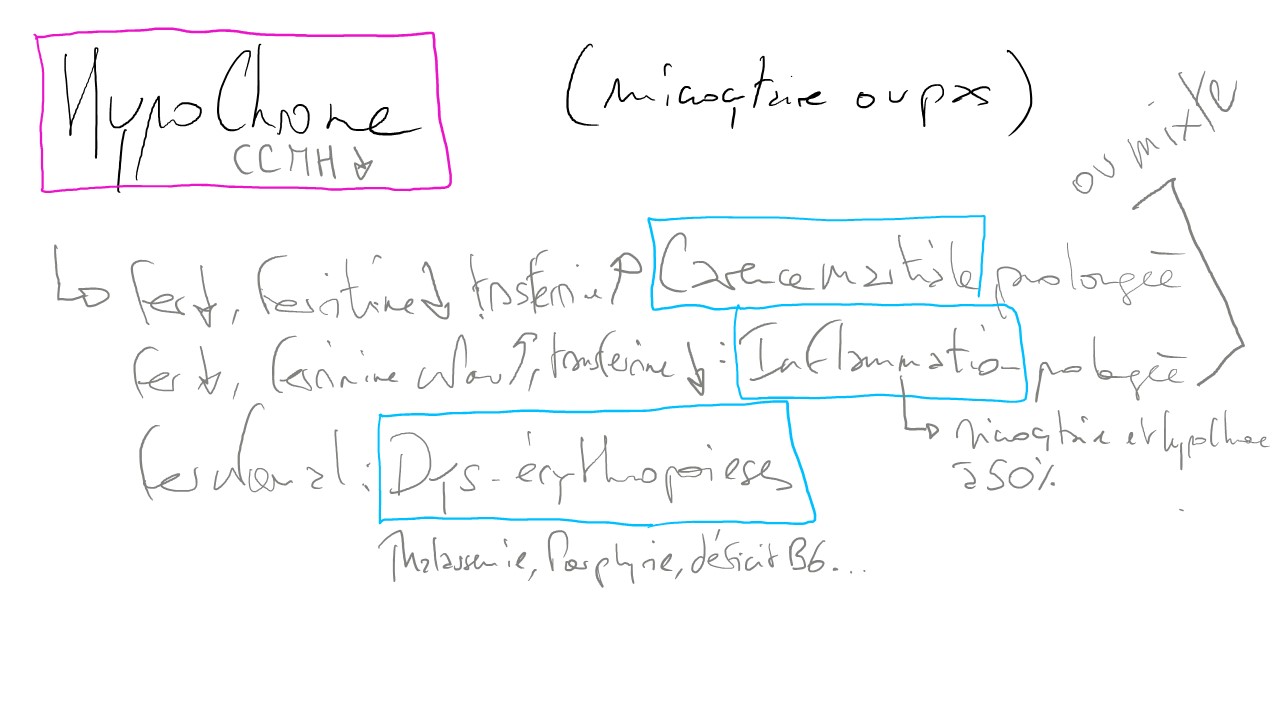 HypoChrome
CCMH ↓
(microcytaire ou pas)
ou mixte
↳ Fer ↓, Ferritine ↓, transferrine ↑ Carence martiale prolongée
Fer ↓, ferritine ou ↑, transferrine ↓ : Inflammation prolongée
↳ microcytaire et hypochrome
à 50%
Fer Normal : Dys-érythropoïeses
Thalassemie, Porphyrie, déficit B6...